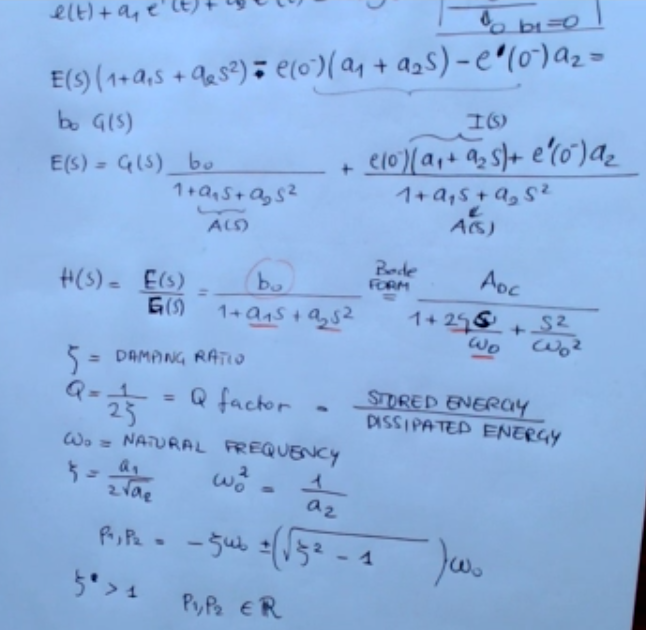 e(t) + a₁ e'(t) +
b₁=0
E(s)(1+a₁s + a₂s²) = e(0⁻)(a₁ + a₂s) - e'(0⁻)a₂ =
b₀ G(s)
I(s)
E(s) = G(s) b₀ / (1+a₁s+a₂s²) + (e(0⁻)(a₁+a₂s) + e'(0⁻)a₂) / (1+a₁s+a₂s²)
A(s) A(s)
H(s) = E(s)/G(s) = b₀ / (1+a₁s+a₂s²) Bode FORM = A_DC / (1 + 2ζs/ω₀ + s²/ω₀²)
ζ = DAMPING RATIO
Q = 1/2ζ = Q factor = STORED ENERGY / DISSIPATED ENERGY
ω₀ = NATURAL FREQUENCY
ζ = a₁/2√a₂ ω₀² = 1/a₂
P₁,P₂ = -ζω₀ ± (√ζ² - 1)ω₀
ζ > 1 P₁,P₂ ∈ ℝ